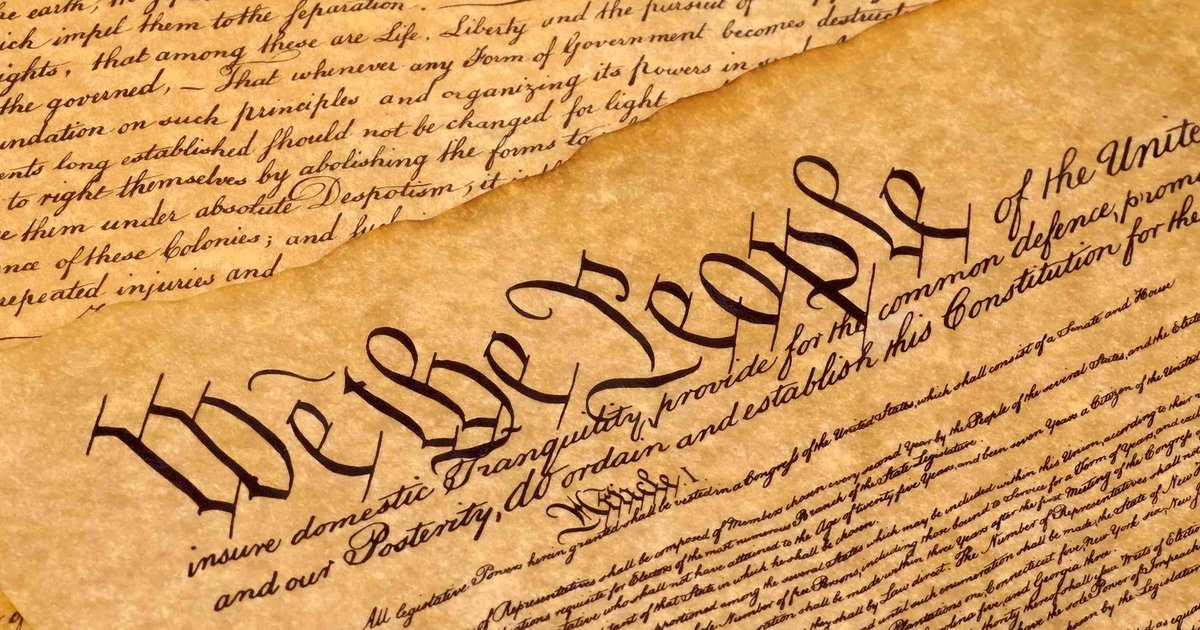 he earth,
ich impel them to the separation.
ights, that among these are Life, Liberty and the pursuit of
the governed, — That whenever any Form of Government becomes destruct
undation on such principles and organizing its powers in
ents long established should not be changed for light
to right themselves by abolishing the forms to
e them under absolute Despotism, it is
ence of these Colonies; and
repeated injuries and
We the People of the Unite
insure domestic Tranquility, provide for the common defence, promo
and our Posterity, do ordain and establish this Constitution for the
Article I
All legislative Powers herein granted shall be vested in a Congress of the United States, which shall consist of a Senate and House
of Representatives shall be composed of Members chosen every second Year by the People of the several States, and the Elect
itions requisite for Electors of the most numerous Branch of the State Legislature.
tative who shall not have attained to the Age of twenty five Years, and been seven Years a Citizen of the United
tant of that State in which he shall be chosen.
portioned among the several States which may be included within this Union, according to their
le Number of free Persons, including those bound to Service for a Term of Years, and
shall be made within three Years after the first Meeting of the Congress
they shall by Law direct. The Number of Representatives shall not
until such enumeration shall be made, the State of New
Plantations one, Connecticut five, New York six, New
olina five, and Georgia three.
thority thereof shall issue Writs of Elect
have the sole Power of Impeach
by the Legislature